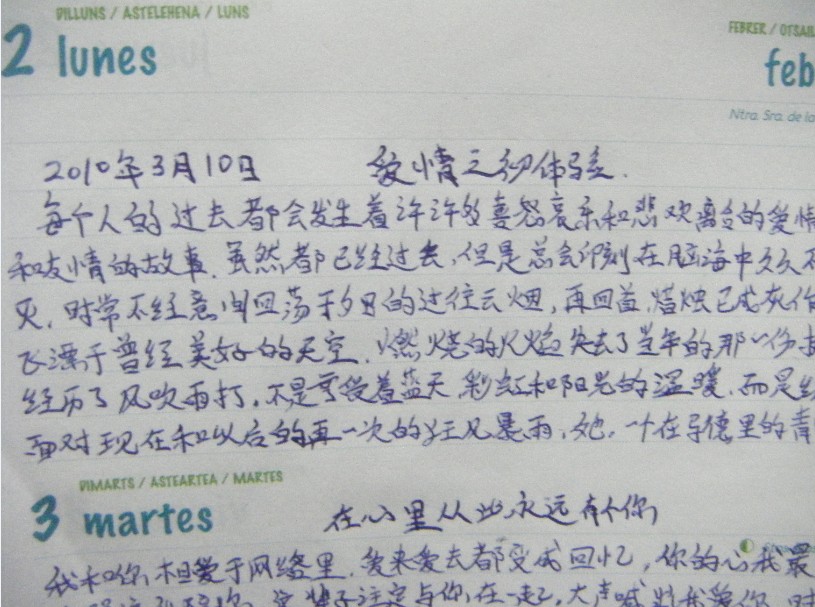 DILLUNS / ASTELEHENA / LUNS
FEBRER / OTSAIL
2 lunes
feb
Ntra. Sra. de la
2010年3月10日 爱情之初体验.
每个人的过去都会发生着许许多多喜怒哀乐和悲欢离合的爱情
和友情的故事. 虽然都已经过去,但是总会印刻在脑海中久久不
灭. 时常不经意间回荡于夕日的过往云烟, 再回首, 蜡烛已成灰作
飞漂于曾经美好的天空. 燃烧的火焰失去了当年的那一份
经历了风吹雨打. 不是享受着蓝天彩虹和阳光的温暖. 而是
面对现在和以后的再一次的狂风暴雨. 她. 一个在 德里的青
DIMARTS / ASTEARTEA / MARTES
3 martes
在心里从此永远有个你
我和你相爱于网络里. 爱来爱去都变成回忆, 你的心我最
注定与你在一起, 大声喊出我爱你